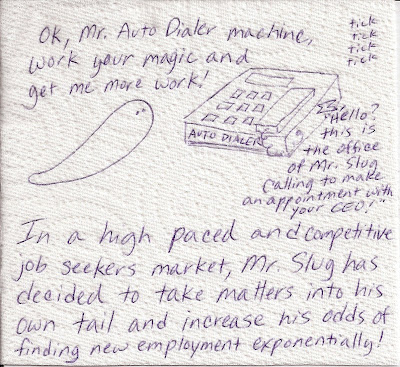 Ok, Mr. Auto Dialer machine,
work your magic and
get me more work!
tick
tick
tick
tick
AUTO DIALER
"Hello?
this is
the office
of Mr. Slug
Calling to make
an appointment with
your CEO!"
In a high paced and competitive
job seekers market, Mr. Slug has
decided to take matters into his
own tail and increase his odds of
finding new employment exponentially!